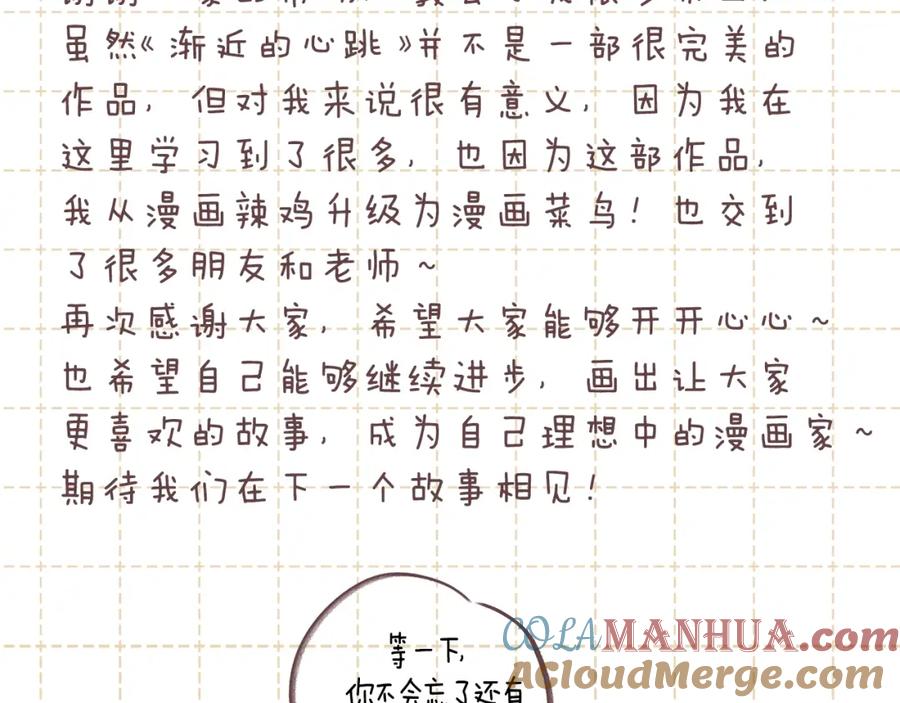 虽然《渐近的心跳》并不是一部很完美的
作品，但对我来说很有意义，因为我在
这里学习到了很多，也因为这部作品，
我从漫画辣鸡升级为漫画菜鸟！也交到
了很多朋友和老师~
再次感谢大家，希望大家能够开开心心~
也希望自己能够继续进步，画出让大家
更喜欢的故事，成为自己理想中的漫画家~
期待我们在下一个故事相见！
等一下，
你不会忘了还有
COLAMANHUA.com
ACloudMerge.com